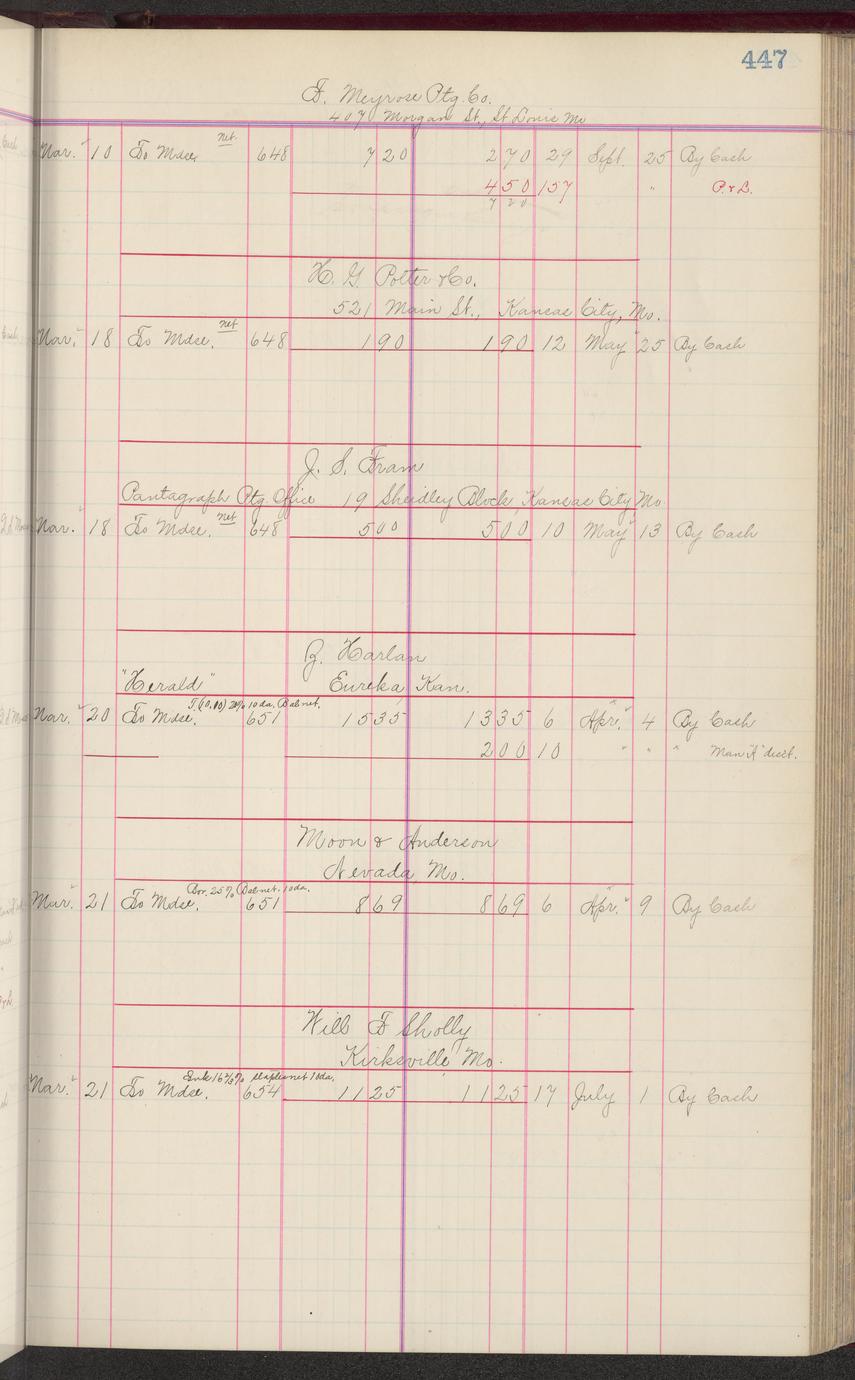 447
F. Meyrose Ptg. Co.
407 Morgan St., St Louis Mo
Mar. 10 To Mdse. net 648 7 20 2 70 29 Sept. 25 By Cash
4 50 157 " P. & L.
7 20
H. G. Potter & Co.
521 Main St., Kansas City, Mo.
Mar. 18 To Mdse. net 648 1 90 1 90 12 May 25 By Cash
J. S. Fram
Pantagraph Ptg. Office 19 Sheidley Block, Kansas City Mo
Mar. 18 To Mdse. net 648 5 00 5 00 10 May 13 By Cash
Z. Harlan
"Herald" Eureka, Kan.
10 da. Bal net.
Mar. 20 To Mdse. 651 15 35 13 35 6 Apr. 4 By Cash
2 00 10 " " " Man "A" disct.
Moon & Anderson
Nevada Mo.
Bor. 25% Bal net. 10 da.
Mar. 21 To Mdse. 651 8 69 8 69 6 Apr. 9 By Cash
Will F Sholly
Kirksville Mo.
Ink 16⅔% Staples net 10 da.
Mar. 21 To Mdse. 654 11 25 11 25 17 July 1 By Cash